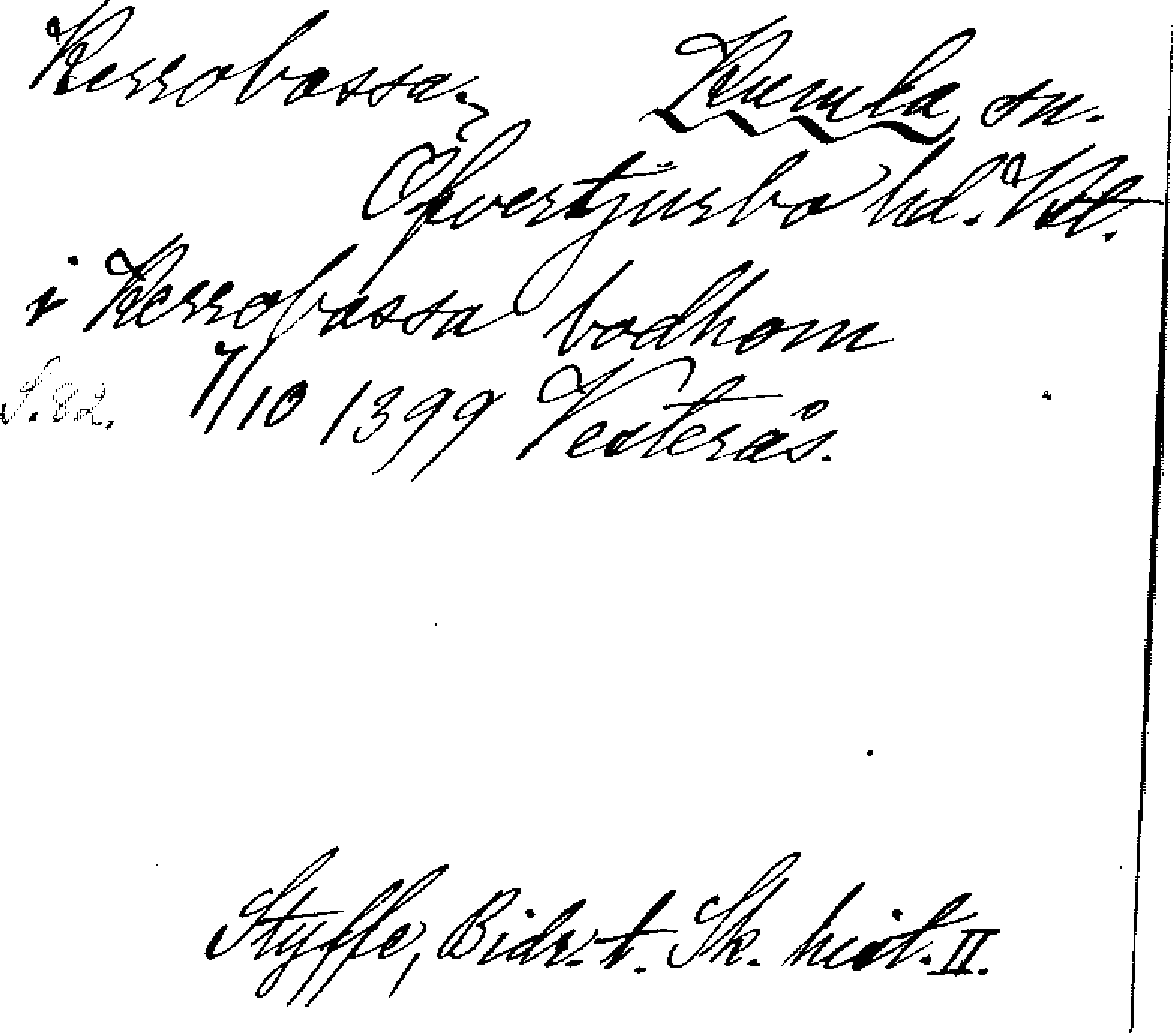 Kerrobossa, Kumla sn.
Öfvertjurbo hd. Vstl.
i Kerrobossa bodhom
S. 82. 7/10 1399 Vesterås.
Styffe, Bidr. t. Sk. hist. II.